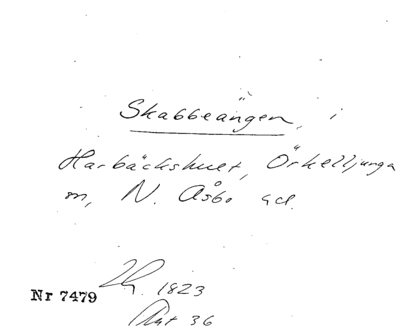 Skabbeängen, i
Harbäckshult, Örkelljunga
m, N. Åsbo hd.
Nr 7479 Lh. 1823
Akt 36